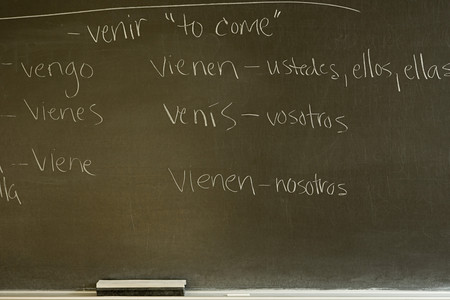 - venir "to come"
- vengo vienen - ustedes, ellos, ellas
- vienes venís - vosotros
- viene
lla vienen - nosotros